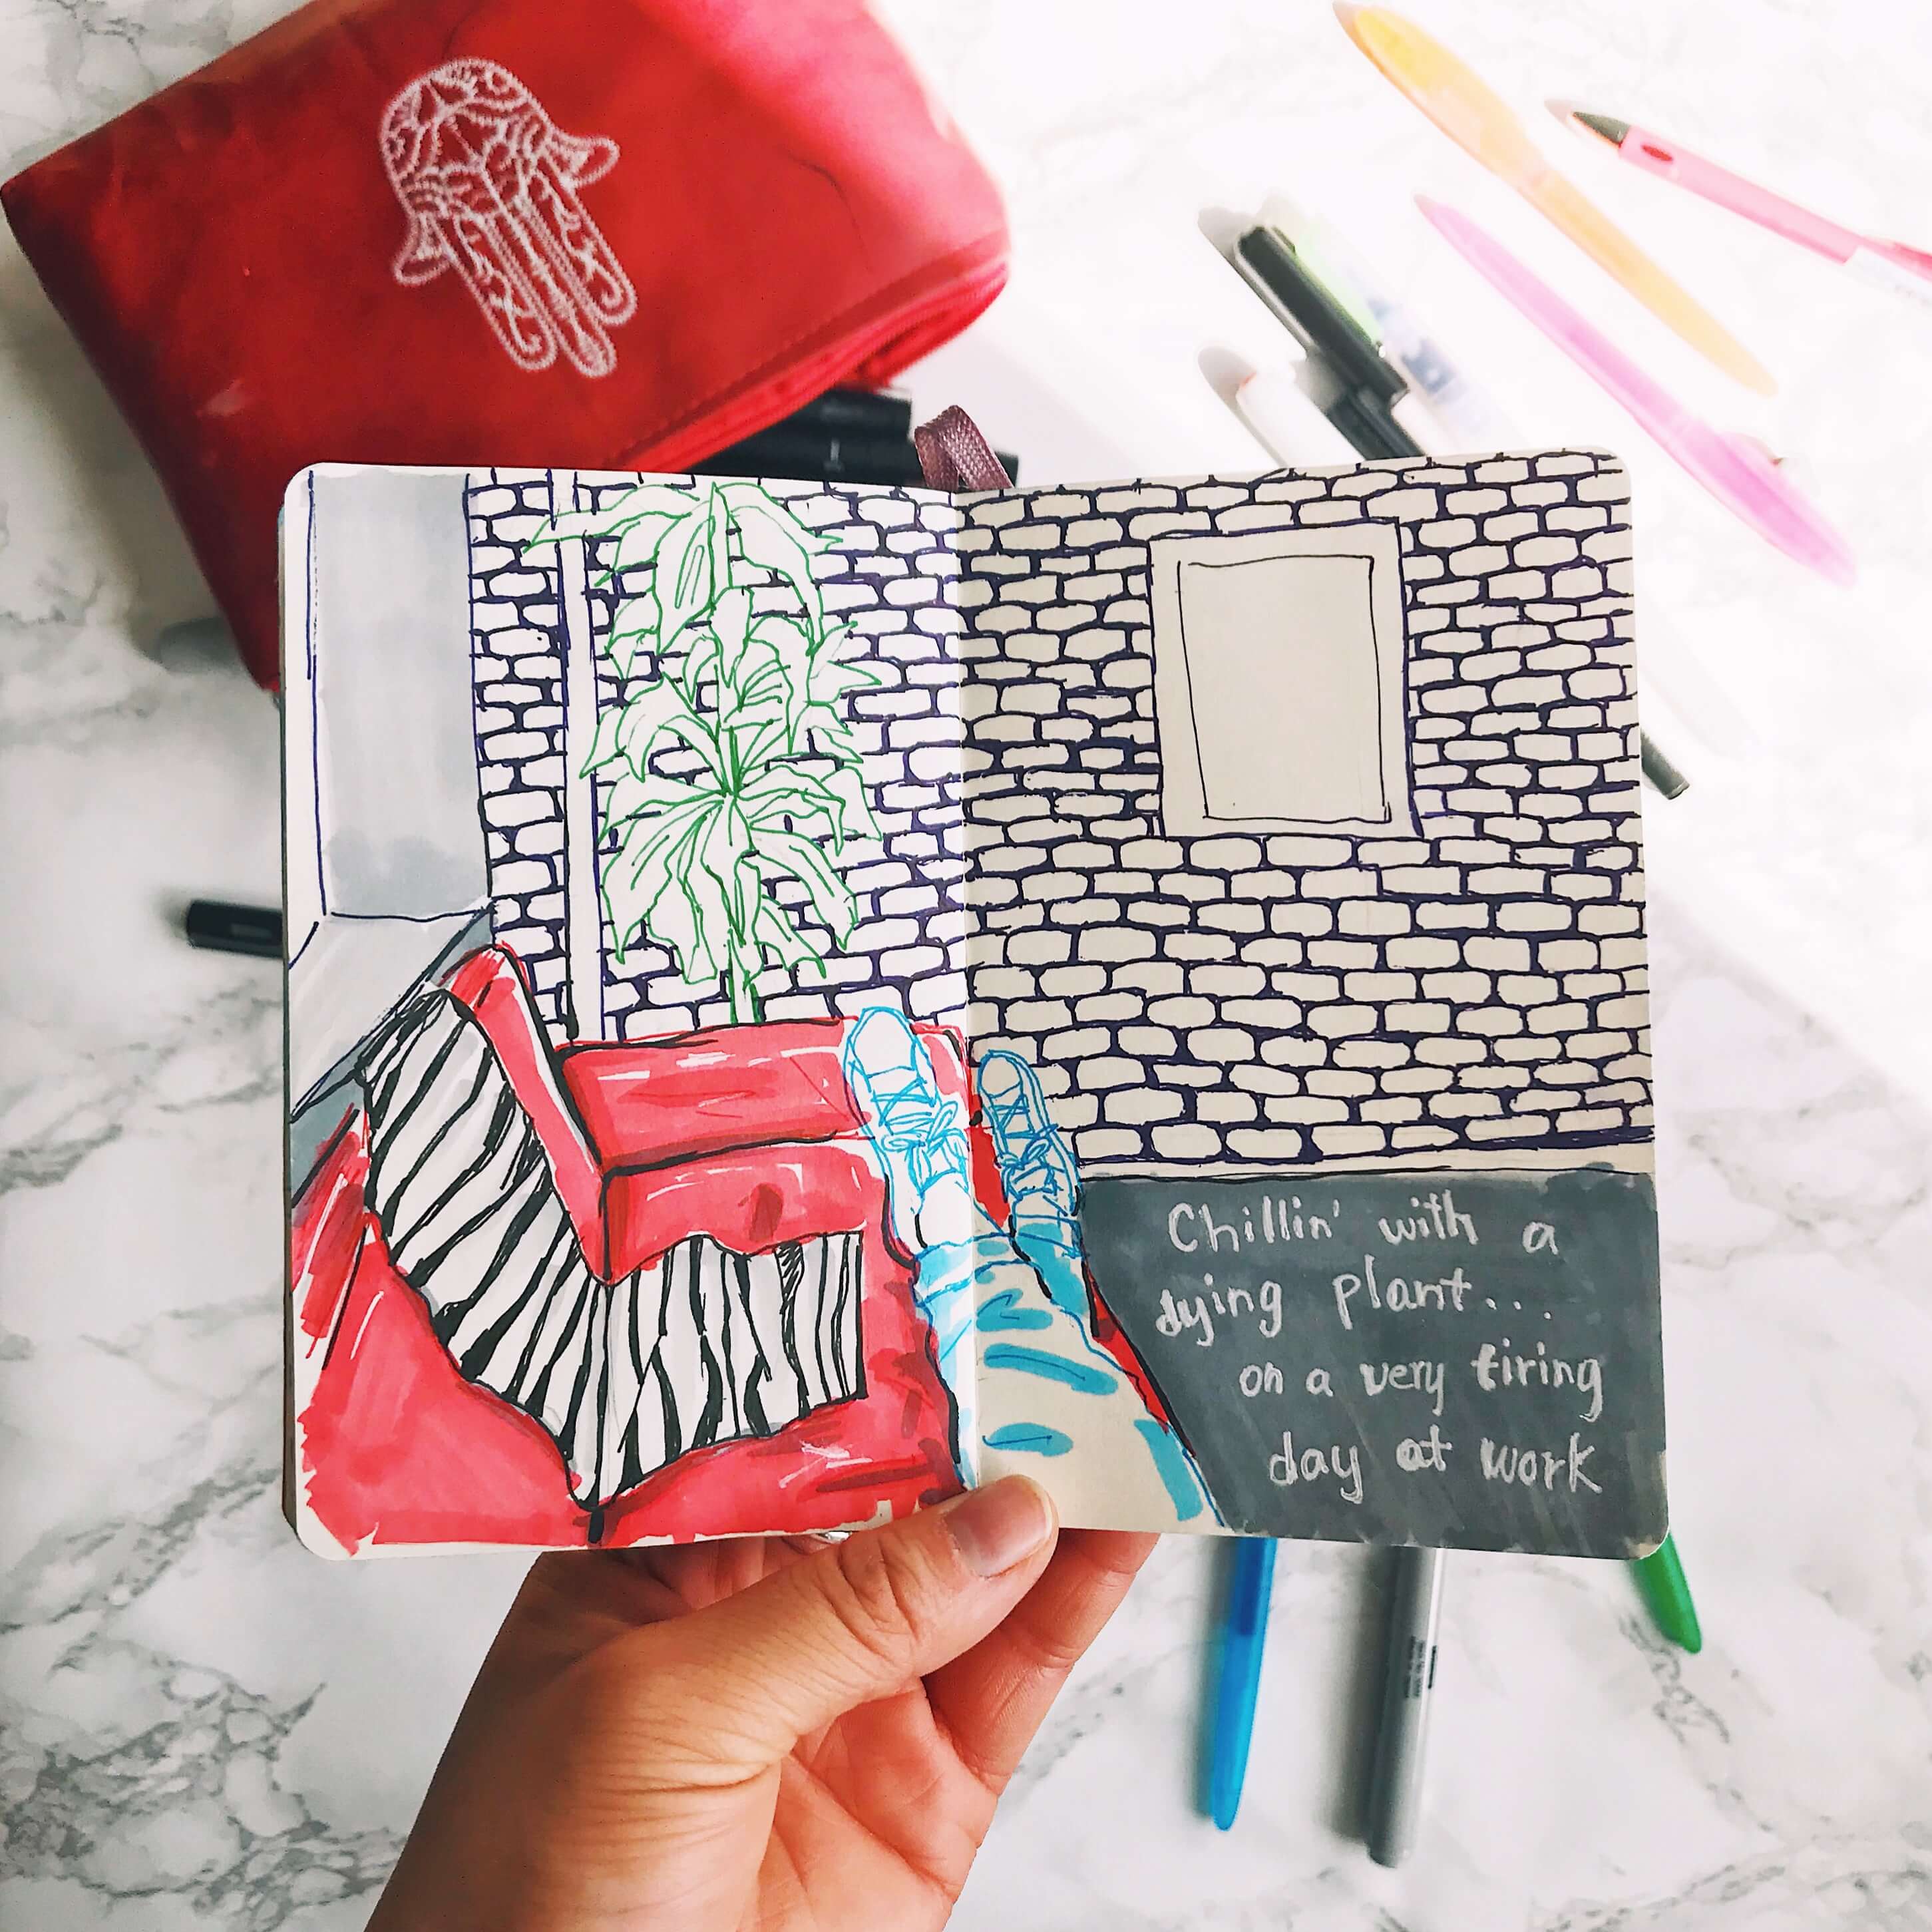 Chillin' with a
dying plant...
on a very tiring
day at work